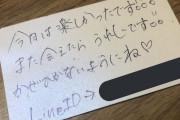 今日は楽しかったです!!
また会えたら うれしーです!!
かぜひかないようにね♡
LineID→